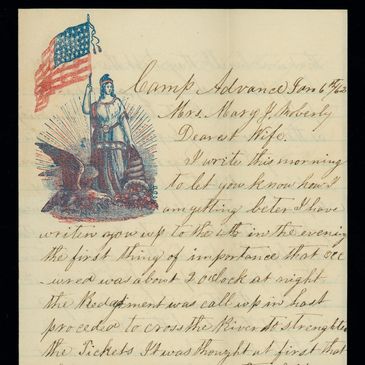 Camp Advance Jan 6th/62
Mrs. Mary J. Moberly
Dearest Wife.
I write this morning
to let you know how I
am getting beter I have
writen you up to the 4th in the evening
the first thing of importance that occ
-ured was about 2 o'clock at night
the Redgement was call up in hast
proceded to cross the River to strengthen
the Pickets It was thought at first that